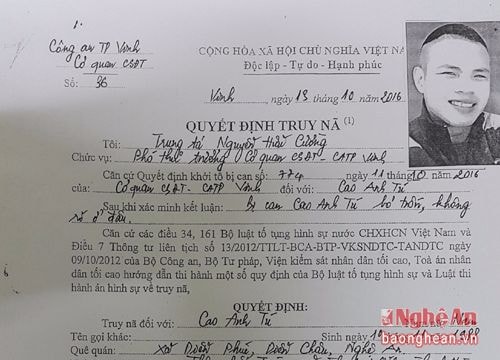 Công an TP Vinh
Cơ quan CSĐT
Số: 36
CỘNG HÒA XÃ HỘI CHỦ NGHĨA VIỆT NA
Độc lập - Tự do - Hạnh phúc
Vinh, ngày 13 tháng 10 năm 2016
QUYẾT ĐỊNH TRUY NÃ (1)
Tôi: Trung tá Nguyễn Hữu Cường
Chức vụ: Phó thủ trưởng Cơ quan CSĐT - CATP Vinh
Căn cứ Quyết định khởi tố bị can số: ngày 11 tháng 10 năm 2016
của: Cơ quan CSĐT - CATP Vinh đối với: Cao Anh Tú
Sau khi xác minh kết luận: Bị can Cao Anh Tú bỏ trốn, không
rõ ở đâu.
Căn cứ các điều 34, 161 Bộ luật tố tụng hình sự nước CHXHCN Việt Nam và
Điều 7 Thông tư liên tịch số 13/2012/TTLT-BCA-BTP-VKSNDTC-TANDTC ngày
09/10/2012 của Bộ Công an, Bộ Tư pháp, Viện kiểm sát nhân dân tối cao, Toà án nhân
dân tối cao hướng dẫn thi hành một số quy định của Bộ luật tố tụng hình sự và Luật thi
hành án hình sự về truy nã,
QUYẾT ĐỊNH:
Truy nã đối với: Cao Anh Tú
Tên gọi khác: Sinh ngày 1988
Quê quán: Xã Diễn Phú, Diễn Châu, Nghệ
Nghệ An
baonghean.vn